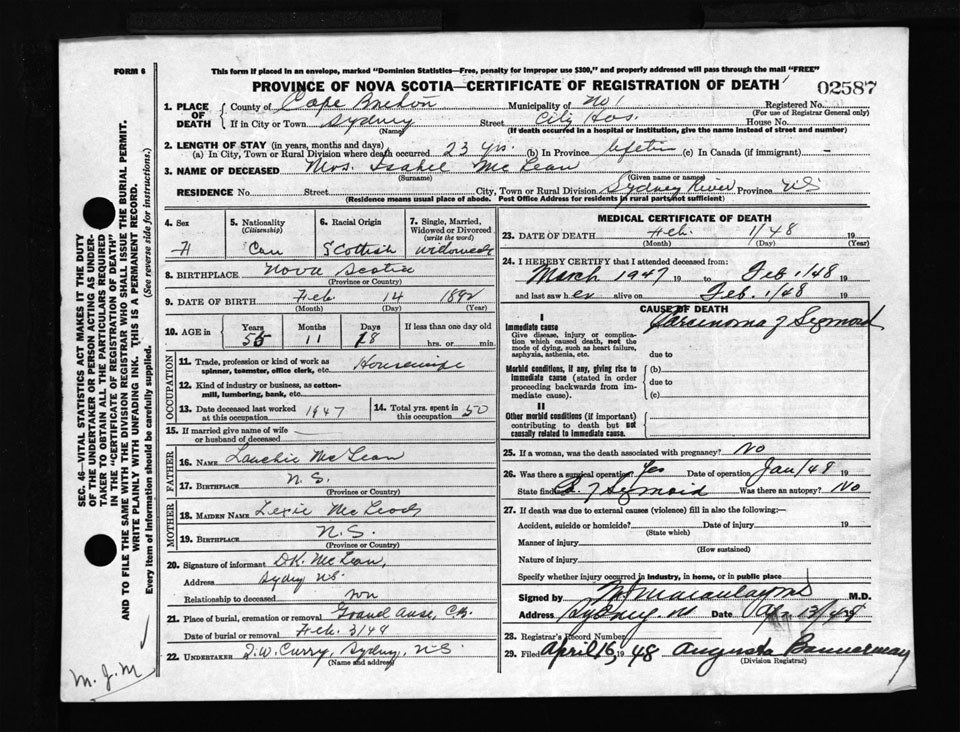 FORM 6
This form if placed in an envelope, marked "Dominion Statistics—Free, penalty for improper use $300," and properly addressed will pass through the mail "FREE"
PROVINCE OF NOVA SCOTIA—CERTIFICATE OF REGISTRATION OF DEATH
02587
1. PLACE OF DEATH { County of Cape Breton Municipality of No 1 Registered No.
(For use of Registrar General only)
If in City or Town Sydney Street City Hos. House No.
(Name) (If death occurred in a hospital or institution, give the name instead of street and number)
2. LENGTH OF STAY (in years, months and days)
(a) In City, Town or Rural Division where death occurred 23 yrs. (b) In Province (c) In Canada (if immigrant) —
3. NAME OF DECEASED Mrs. McLean
(Surname) (Given name or names)
RESIDENCE No. Street City, Town or Rural Division Sydney River Province NS
(Residence means usual place of abode. Post Office Address for residents in rural parts not sufficient)
4. Sex
5. Nationality (Citizenship)
Can
6. Racial Origin
Scottish
7. Single, Married, Widowed or Divorced (write the word)
widowed
8. BIRTHPLACE Nova Scotia
(Province or Country)
9. DATE OF BIRTH Feb 14 1892
(Month) (Day) (Year)
10. AGE in { Years Months Days If less than one day old
55 11 18 hrs. or min.
OCCUPATION
11. Trade, profession or kind of work as spinner, teamster, office clerk, etc. Housewife
12. Kind of industry or business, as cotton-mill, lumbering, bank, etc.
13. Date deceased last worked at this occupation 1947
14. Total yrs. spent in this occupation 50
15. If married give name of wife or husband of deceased
FATHER
16. NAME Lauchie McLean
17. BIRTHPLACE N.S.
(Province or Country)
MOTHER
18. MAIDEN NAME Lexie McLeod
19. BIRTHPLACE N.S.
(Province or Country)
20. Signature of informant D.K. McLean,
Address Sydney NS.
Relationship to deceased
21. Place of burial, cremation or removal Grand Anse, C.B.
Date of burial or removal Feb. 3/48
22. UNDERTAKER Curry, Sydney, N.S.
(Name and address)
MEDICAL CERTIFICATE OF DEATH
23. DATE OF DEATH Feb. 1/48
(Month) (Day) (Year)
24. I HEREBY CERTIFY that I attended deceased from:
March 1947 19 to Feb 1/48 19
and last saw her alive on Feb. 1/48 19
CAUSE OF DEATH
I
Immediate cause
Give disease, injury or complication which caused death, not the mode of dying, such as heart failure, asphyxia, asthenia, etc.
Carcinoma of Sigmoid
due to
Morbid conditions, if any, giving rise to immediate cause (stated in order proceeding backwards from immediate cause).
(b)
due to
(c)
II
Other morbid conditions (if important) contributing to death but not causally related to immediate cause.
25. If a woman, was the death associated with pregnancy? No
26. Was there a surgical operation? Yes Date of operation Jan/48 19
State findings of Sigmoid Was there an autopsy? No
27. If death was due to external causes (violence) fill in also the following:—
Accident, suicide or homicide? Date of injury 19
(State which)
Manner of injury
(How sustained)
Nature of injury
Specify whether injury occurred in industry, in home, or in public place
Signed by Macaulay M.D.
Address Sydney NS Date
28. Registrar's Record Number
29. Filed April 16, 1948 Augusta Bannerman
(Division Registrar)
SEC. 46—VITAL STATISTICS ACT MAKES IT THE DUTY
OF THE UNDERTAKER OR PERSON ACTING AS UNDER-
TAKER TO OBTAIN ALL THE PARTICULARS REQUIRED
IN THE "CERTIFICATE OF REGISTRATION OF DEATH"
AND TO FILE THE SAME WITH THE DIVISION REGISTRAR WHO SHALL ISSUE THE BURIAL PERMIT.
WRITE PLAINLY WITH UNFADING INK. THIS IS A PERMANENT RECORD.
Every item of information should be carefully supplied. (See reverse side for instructions.)
M. J. M